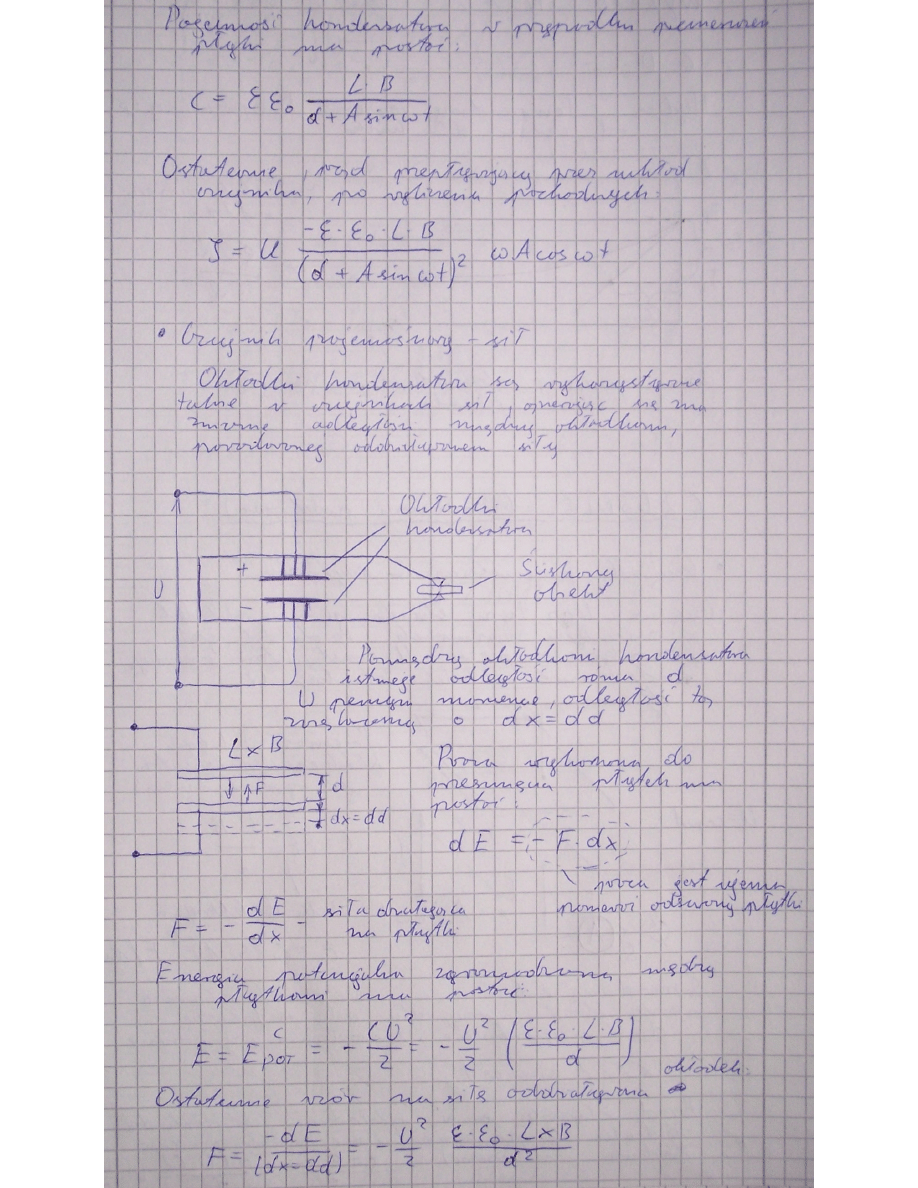 Pojemność kondensatora w przypadku
płytki ma postać:
C = εε₀ L·B / (d + A sin ωt)
Ostatecznie, prąd przepływający przez układ
czujnika, po wyliczeniu pochodnych:
J = U (-ε·ε₀·L·B) / (d + A sin ωt)² ωA cos ωt
• Czujnik pojemnościowy - sił
Okładki kondensatora są wykorzystywane
także w czujnikach sił, opierając się na
zmianie odległości między okładkami,
powodowanej oddziaływaniem siły
Okładki
kondensatora
+
U
-
Ściskany
obiekt
Pomiędzy okładkami kondensatora
istnieje odległość równa d
W pewnym momencie, odległość tą
zwiększamy o dx = dd
L x B
F
d
dx = dd
Praca wykonana do
przesunięcia płytek ma
postać:
dE = - F·dx
praca jest ujemna
ponieważ odsuwamy płytki
F = - dE/dx - siła działająca
na płytki
Energia potencjalna zgromadzona między
płytkami ma postać:
E = E^C_POT = - CU²/2 = - U²/2 (ε·ε₀·L·B / d)
Ostatecznie wzór na siłę oddziaływania okładek:
F = -dE / (dx = dd) = - U²/2 ε·ε₀·L x B / d²